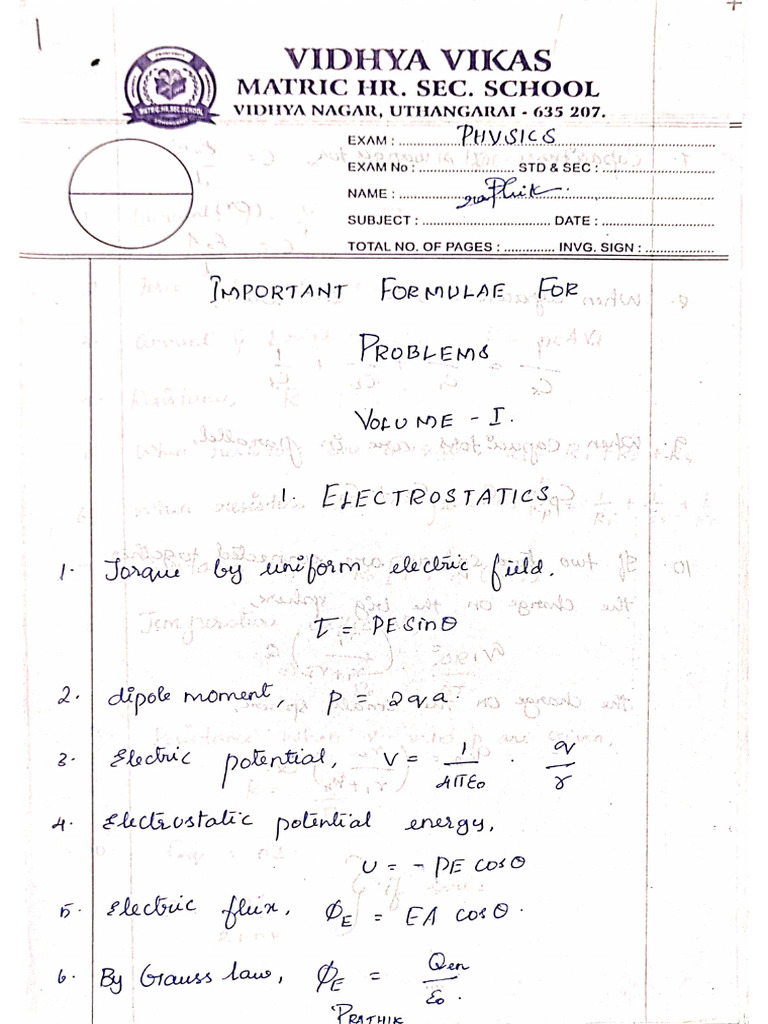 VIDHYA VIKAS
MATRIC HR. SEC. SCHOOL
VIDHYA NAGAR, UTHANGARAI - 635 207.
MATRIC.HR.SEC.SCHOOL
EXAM : PHYSICS
EXAM No : STD & SEC :
NAME :
SUBJECT : DATE :
TOTAL NO. OF PAGES : INVG. SIGN :
IMPORTANT FORMULAE FOR
PROBLEMS
VOLUME - I.
1. ELECTROSTATICS
1. Torque by uniform electric field.
τ = PE sinθ
2. dipole moment, p = 2qa.
3. Electric potential, V = 1/4πε₀ . q/r
4. Electrostatic potential energy,
U = - PE cosθ
5. Electric flux, ϕE = EA cosθ.
6. By Gauss law, ϕE = Qen/ε₀.
PRATHIK